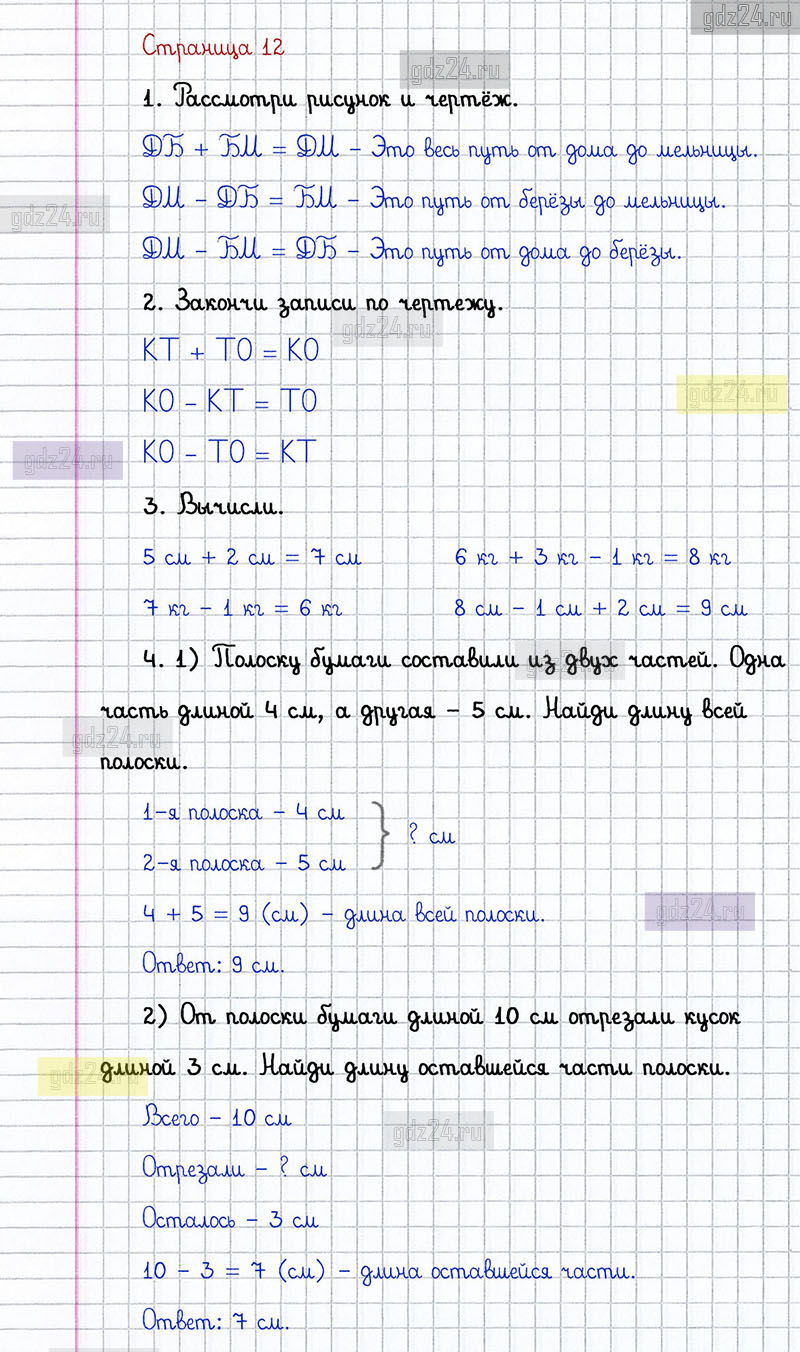 gdz24.ru
Страница 12
gdz24.ru
1. Рассмотри рисунок и чертёж.
ДБ + БМ = ДМ – Это весь путь от дома до мельницы.
ДМ – ДБ = БМ – Это путь от берёзы до мельницы.
gdz24.ru
ДМ – БМ = ДБ – Это путь от дома до берёзы.
2. Закончи записи по чертежу.
gdz24.ru
КТ + ТО = КО
gdz24.ru
КО – КТ = ТО
КО – ТО = КТ
gdz24.ru
3. Вычисли.
5 см + 2 см = 7 см 6 кг + 3 кг – 1 кг = 8 кг
7 кг – 1 кг = 6 кг 8 см – 1 см + 2 см = 9 см
4. 1) Полоску бумаги составили из двух частей. Одна
gdz24.ru
часть длиной 4 см, а другая – 5 см. Найди длину всей
gdz24.ru
полоски.
1-я полоска – 4 см
? см
2-я полоска – 5 см
4 + 5 = 9 (см) – длина всей полоски.
gdz24.ru
Ответ: 9 см.
2) От полоски бумаги длиной 10 см отрезали кусок
длиной 3 см. Найди длину оставшейся части полоски.
gdz24.ru
Всего – 10 см
gdz24.ru
Отрезали – ? см
Осталось – 3 см
10 – 3 = 7 (см) – длина оставшейся части.
Ответ: 7 см.